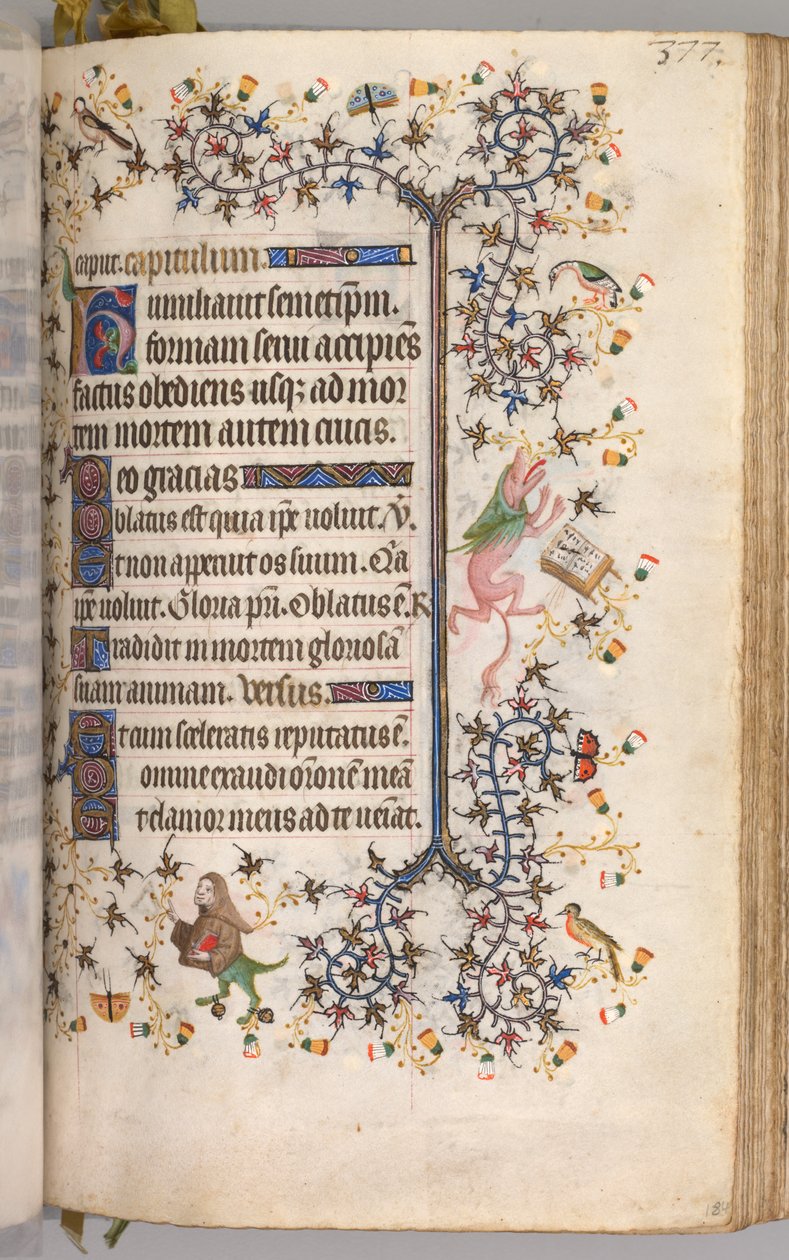 377.
caput. capitulum.
Humiliavit semetip̄m.
formam servi accipiēs
factus obediens usq; ad mor
tem mortem autem crucis.
Deo gracias
Oblatus est quia ip̄e voluit. V̄.
Et non apperuit os suum. Q̄a
ip̄e voluit. Gloria pr̄i. Oblatus ē. R
Tradidit in mortem gloriosā
suam animam. versus.
Et cum sceleratis reputatus ē.
Domine exaudi or̄onē meā
Et clamor meus ad te veīat.
184